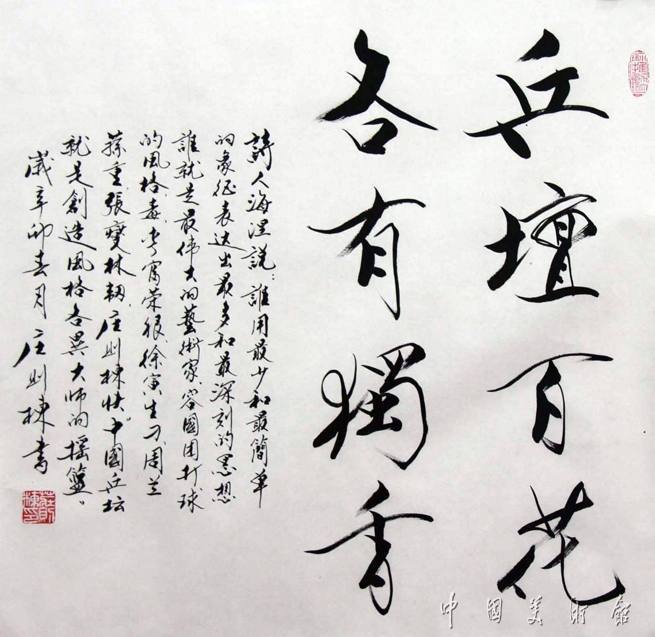 乒壇百花
各有獨香
詩人海涅説：誰用最少和最簡单
的象征表达出最多和最深刻的思想
誰就是最伟大的藝術家。容國团打球
的風格毒、李富荣狠、徐寅生刁、周兰
蓀重、張燮林韌、庄则棟快。中國乒坛
就是創造風格各異大师的摇籃。
歲辛卯春月庄则棟書
中國美術館